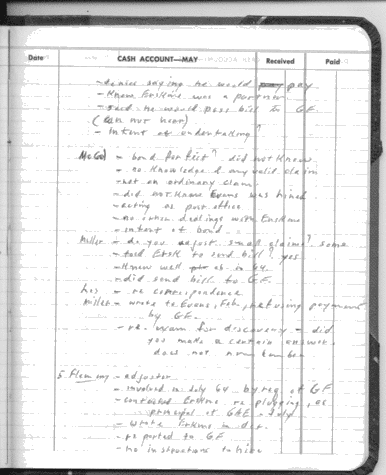 Date CASH ACCOUNT—MAY Received Paid
- denies saying he would pay
- Knew Erskine was a partner
- said he would pass bill to GF
(can not hear)
- intent of undertaking?
McGol - bond forfeit? did not know
- no knowledge of any valid claim
- not an ordinary claim
- did not know Evans was hired
- acting as post office
- no direct dealings with Erskine
- intent of bond
Miller - do you adjust small claims? some
- told Ersk to send bill? yes
- knew well as in 64
- did send bill to GF.
- re correspondence
Miller - wrote to Evans, Feb, refusing payment
by GF.
- re. exam for discovery - did
you make a certain answer,
does not remember
5. Flemming - adjuster
- involved in July 64 by req of GF
- contacted Erskine re plugging, as
principal of G&E - July
- wrote Erskine in
- reported to GF
- no instructions to hire